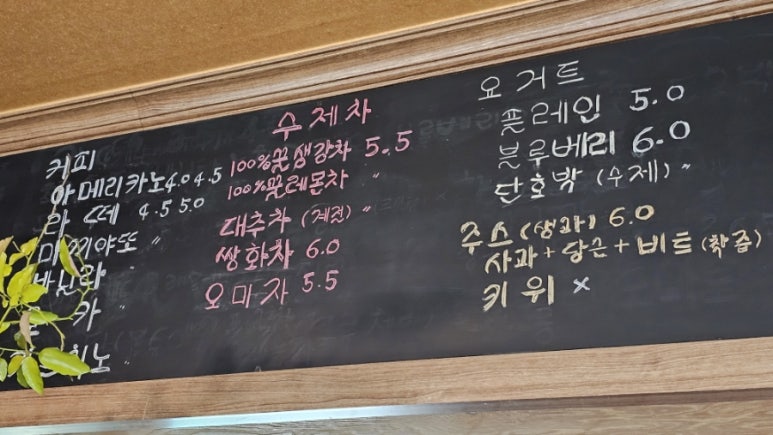 커피
아메리카노 4.0 4.5
라 떼 4.5 5.0
마끼야또 〃
바닐라 〃
카 〃
노 〃
수제차
100%꿀생강차 5.5
100%꿀레몬차 〃
대추차 (계절) 〃
쌍화차 6.0
오미자 5.5
요거트
플레인 5.0
블루베리 6.0
단호박 (수제) 〃
주스 (생과) 6.0
사과 + 당근 + 비트 (착즙)
키 위 ×